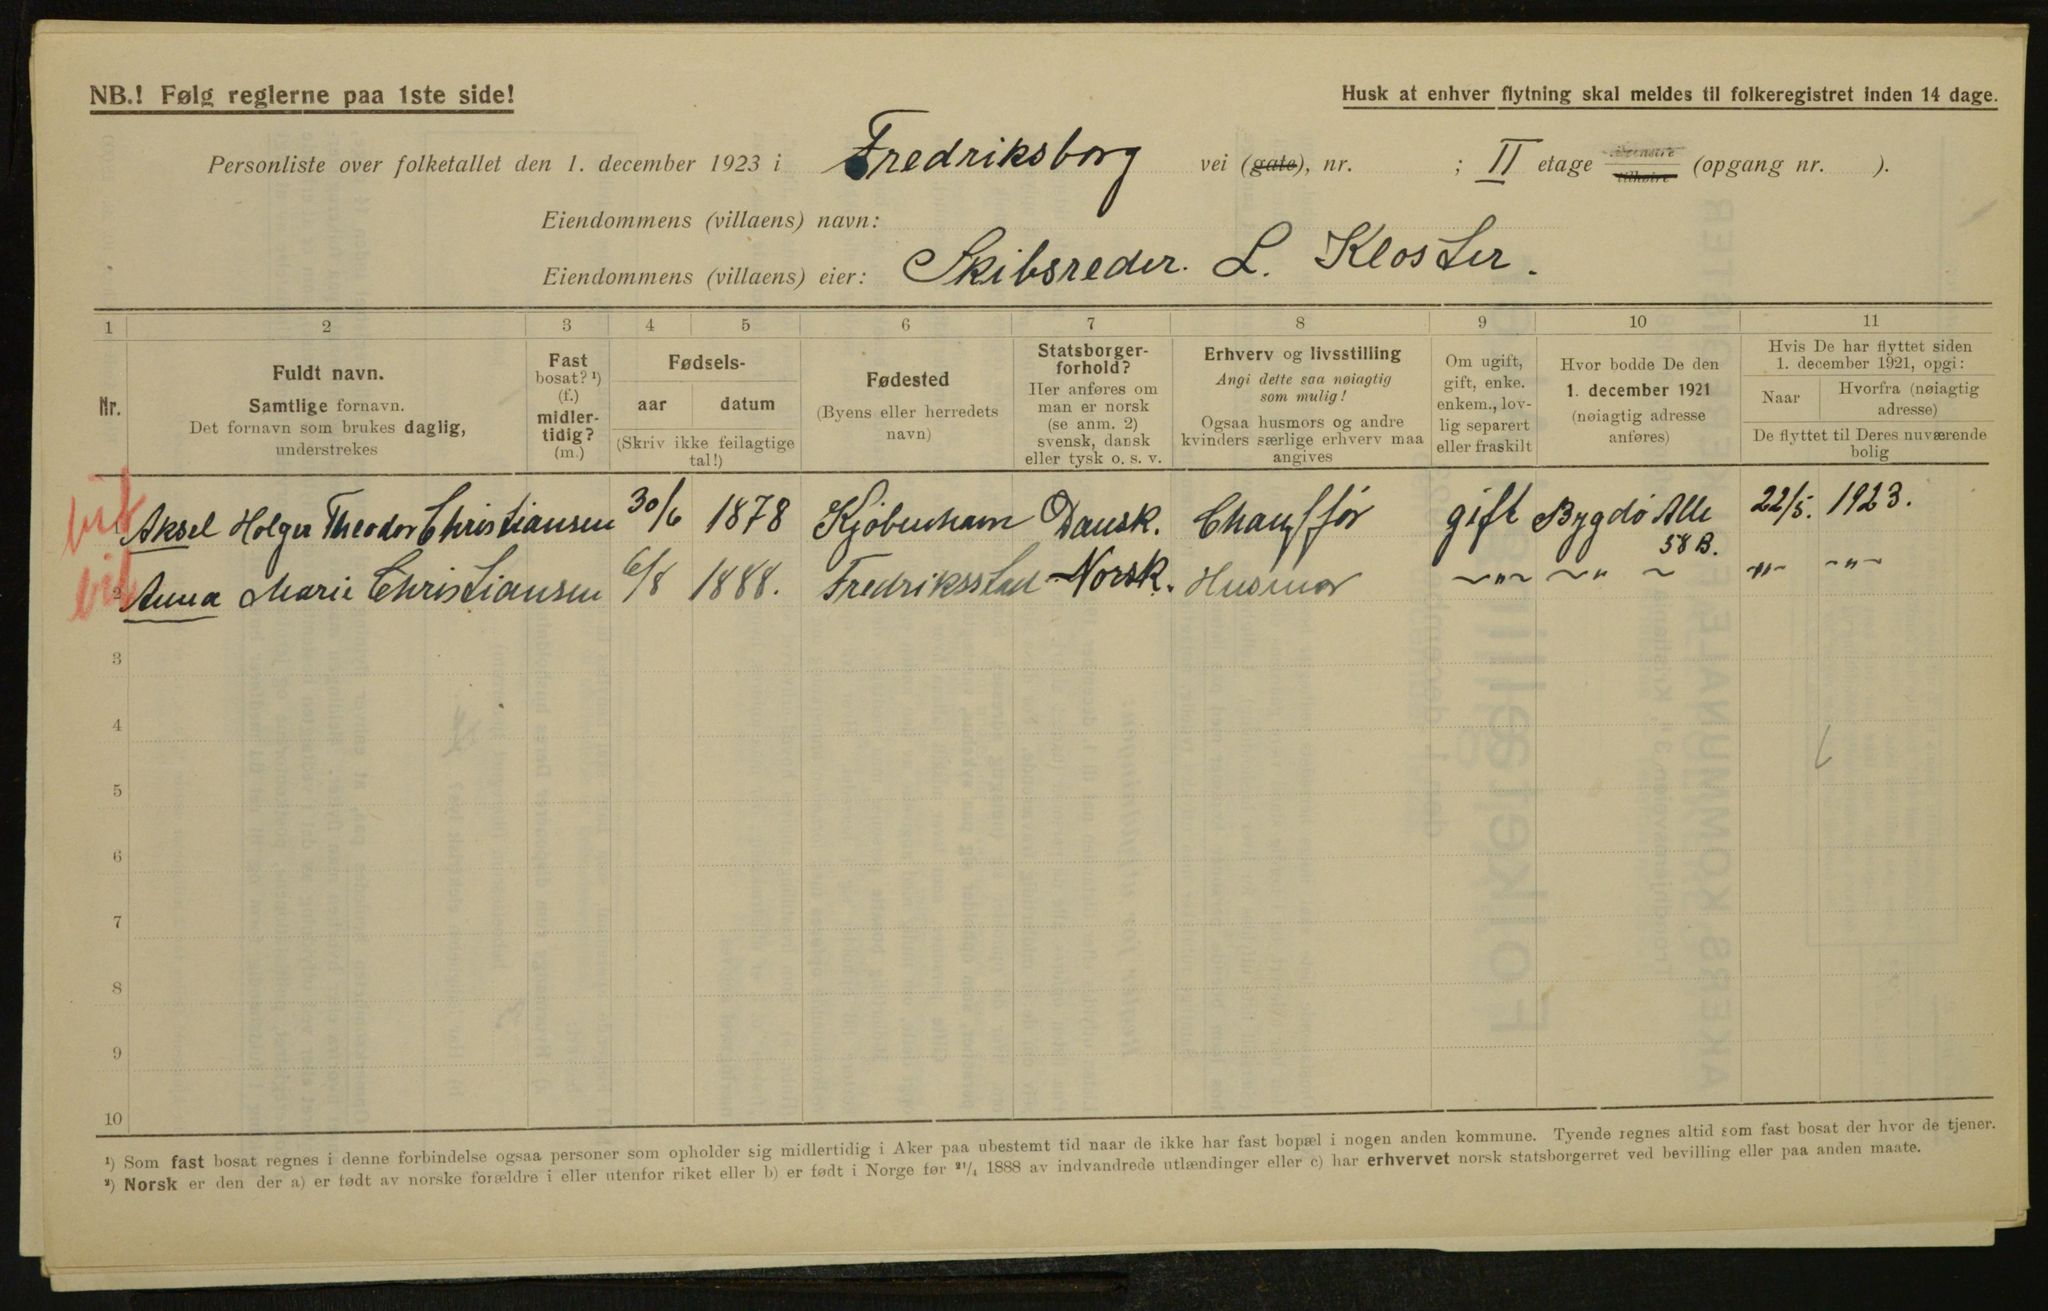 NB.! Følg reglerne paa 1ste side!
Husk at enhver flytning skal meldes til folkeregistret inden 14 dage.
Personliste over folketallet den 1. december 1923 i Fredriksborg vei (gate), nr. ; II etage tilhøire (opgang nr. ).
Eiendommens (villaens) navn:
Eiendommens (villaens) eier: Skibsreder. L. Kloster.
1 2 3 4 5 6 7 8 9 10 11
Nr.
Fuldt navn.
Samtlige fornavn.
Det fornavn som brukes daglig,
understrekes
Fast
bosat? ¹)
(f.)
midler-
tidig?
(m.)
Fødsels-
aar datum
(Skriv ikke feilagtige
tal!)
Fødested
(Byens eller herredets
navn)
Statsborger-
forhold?
Her anføres om
man er norsk
(se anm. 2)
svensk, dansk
eller tysk o. s. v.
Erhverv og livsstilling
Angi dette saa nøiagtig
som mulig!
Ogsaa husmors og andre
kvinders særlige erhverv maa
angives
Om ugift,
gift, enke.
enkem., lov-
lig separert
eller fraskilt
Hvor bodde De den
1. december 1921
(nøiagtig adresse
anføres)
Hvis De har flyttet siden
1. december 1921, opgi:
Naar
Hvorfra (nøiagtig
adresse)
De flyttet til Deres nuværende
bolig
Aksel Holger Theodor Christiansen 30/6 1878 Kjøbenhavn Dansk. Chauffør gift Bygdö Alle 58 B. 22/5. 1923.
2 Anna Marie Christiansen 6/8 1888. Fredriksstad Norsk. Husmor ~"~ ~" ~ "" -"-
3
4
5
6
7
8
9
10
¹) Som fast bosat regnes i denne forbindelse ogsaa personer som opholder sig midlertidig i Aker paa ubestemt tid naar de ikke har fast bopæl i nogen anden kommune. Tyende regnes altid som fast bosat der hvor de tjener.
²) Norsk er den der a) er født av norske forældre i eller utenfor riket eller b) er født i Norge før ²¹/₄ 1888 av indvandrede utlændinger eller c) har erhvervet norsk statsborgerret ved bevilling eller paa anden maate.